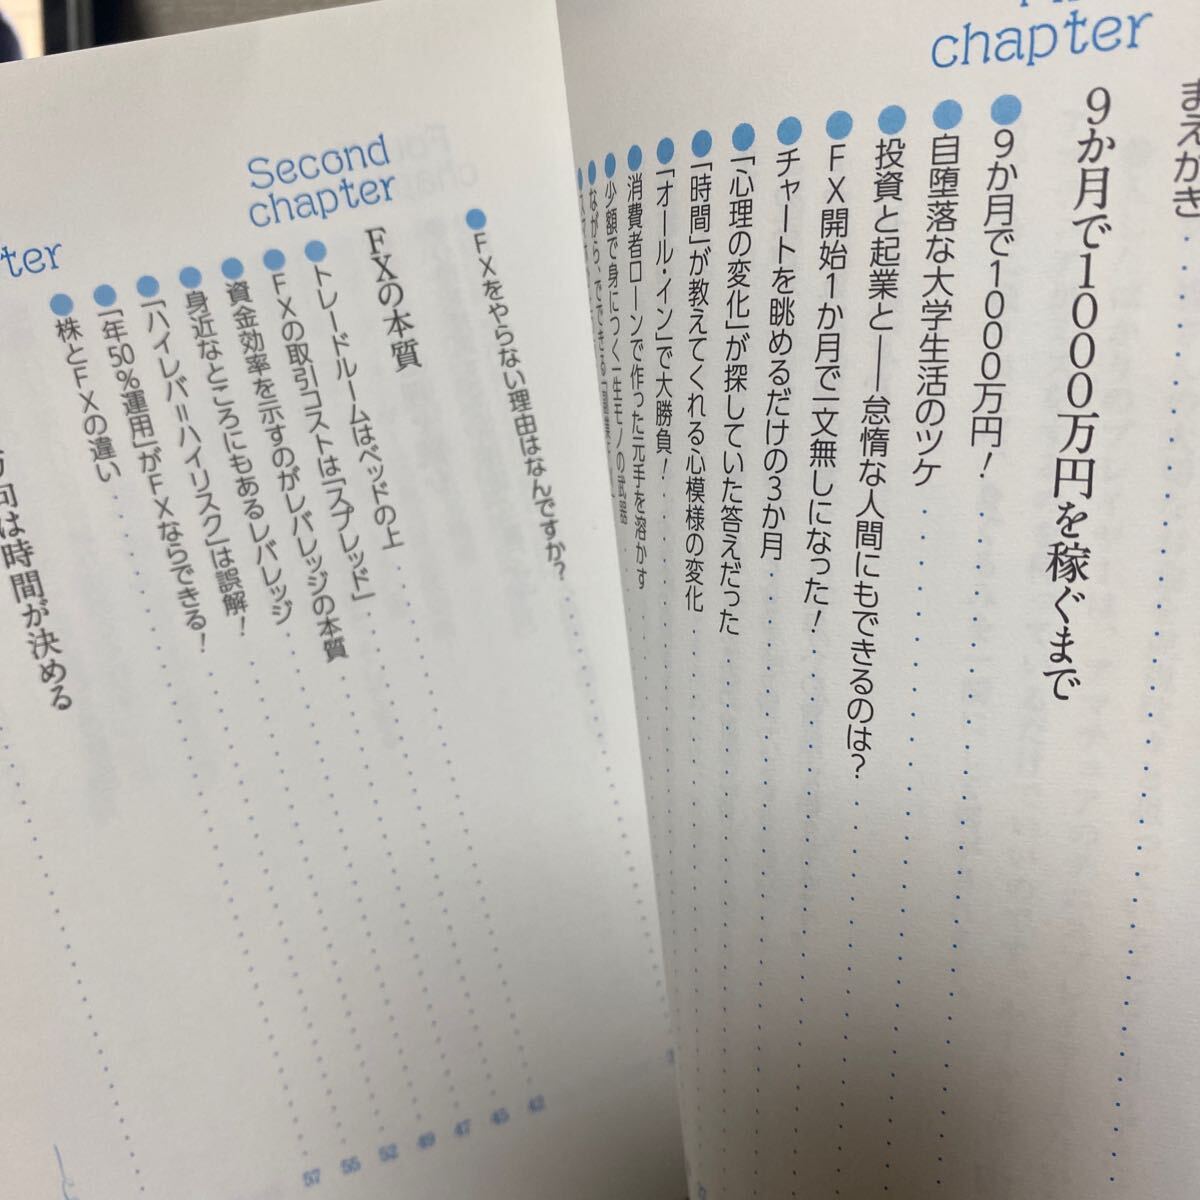 まえがき
chapter
9か月で1000万円を稼ぐまで
9か月で1000万円！
自堕落な大学生活のツケ
投資と起業と——怠惰な人間にもできるのは？
FX開始1か月で一文無しになった！
チャートを眺めるだけの3か月
「心理の変化」が探していた答えだった
「時間」が教えてくれる心模様の変化
「オール・イン」で大勝負！
消費者ローンで作った元手を溶かす
少額で身につく一生モノの武器
ながら、でできる
FXをやらない理由はなんですか？
Second
chapter
FXの本質
トレードルームはベッドの上 43
FXの取引コストは「スプレッド」 45
資金効率を示すのがレバレッジの本質 47
身近なところにもあるレバレッジ 49
「ハイレバ＝ハイリスク」は誤解！ 52
「年50%運用」がFXならできる！ 55
株とFXの違い 57
は時間が決める